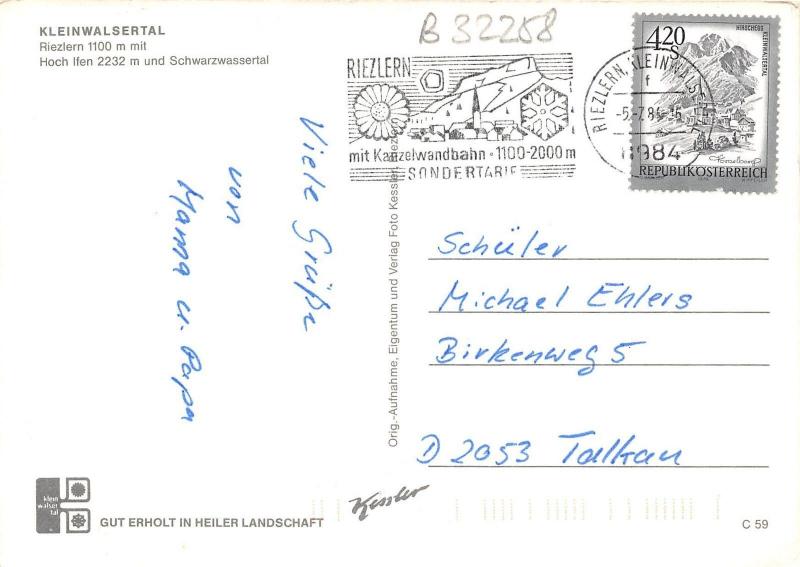 KLEINWALSERTAL
Riezlern 1100 m mit
Hoch Ifen 2232 m und Schwarzwassertal
B 32258
RIEZLERN
mit Kanzelwandbahn · 1100-2000 m
SONDERTARIF
RIEZLERN, KLEINWALSERTAL
f
4.20
S
HIRSCHEGG
KLEINWALSERTAL
REPUBLIK ÖSTERREICH
Viele Grüße
von
Mama u. Papa
Orig.-Aufnahme, Eigentum und Verlag Foto Kessler,
Schüler
Michael Ehlers
Birkenweg 5
D 2053 Talkau
klein
walser
tal
GUT ERHOLT IN HEILER LANDSCHAFT
Kessler
C 59